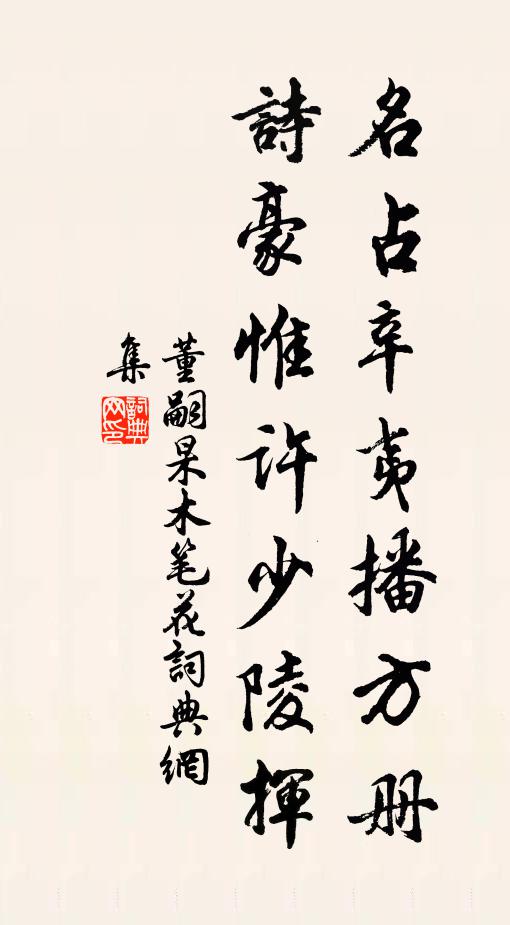 名占辛夷播方册
詩豪惟許少陵揮
董嗣杲木笔花詞典網
集
詞典網印